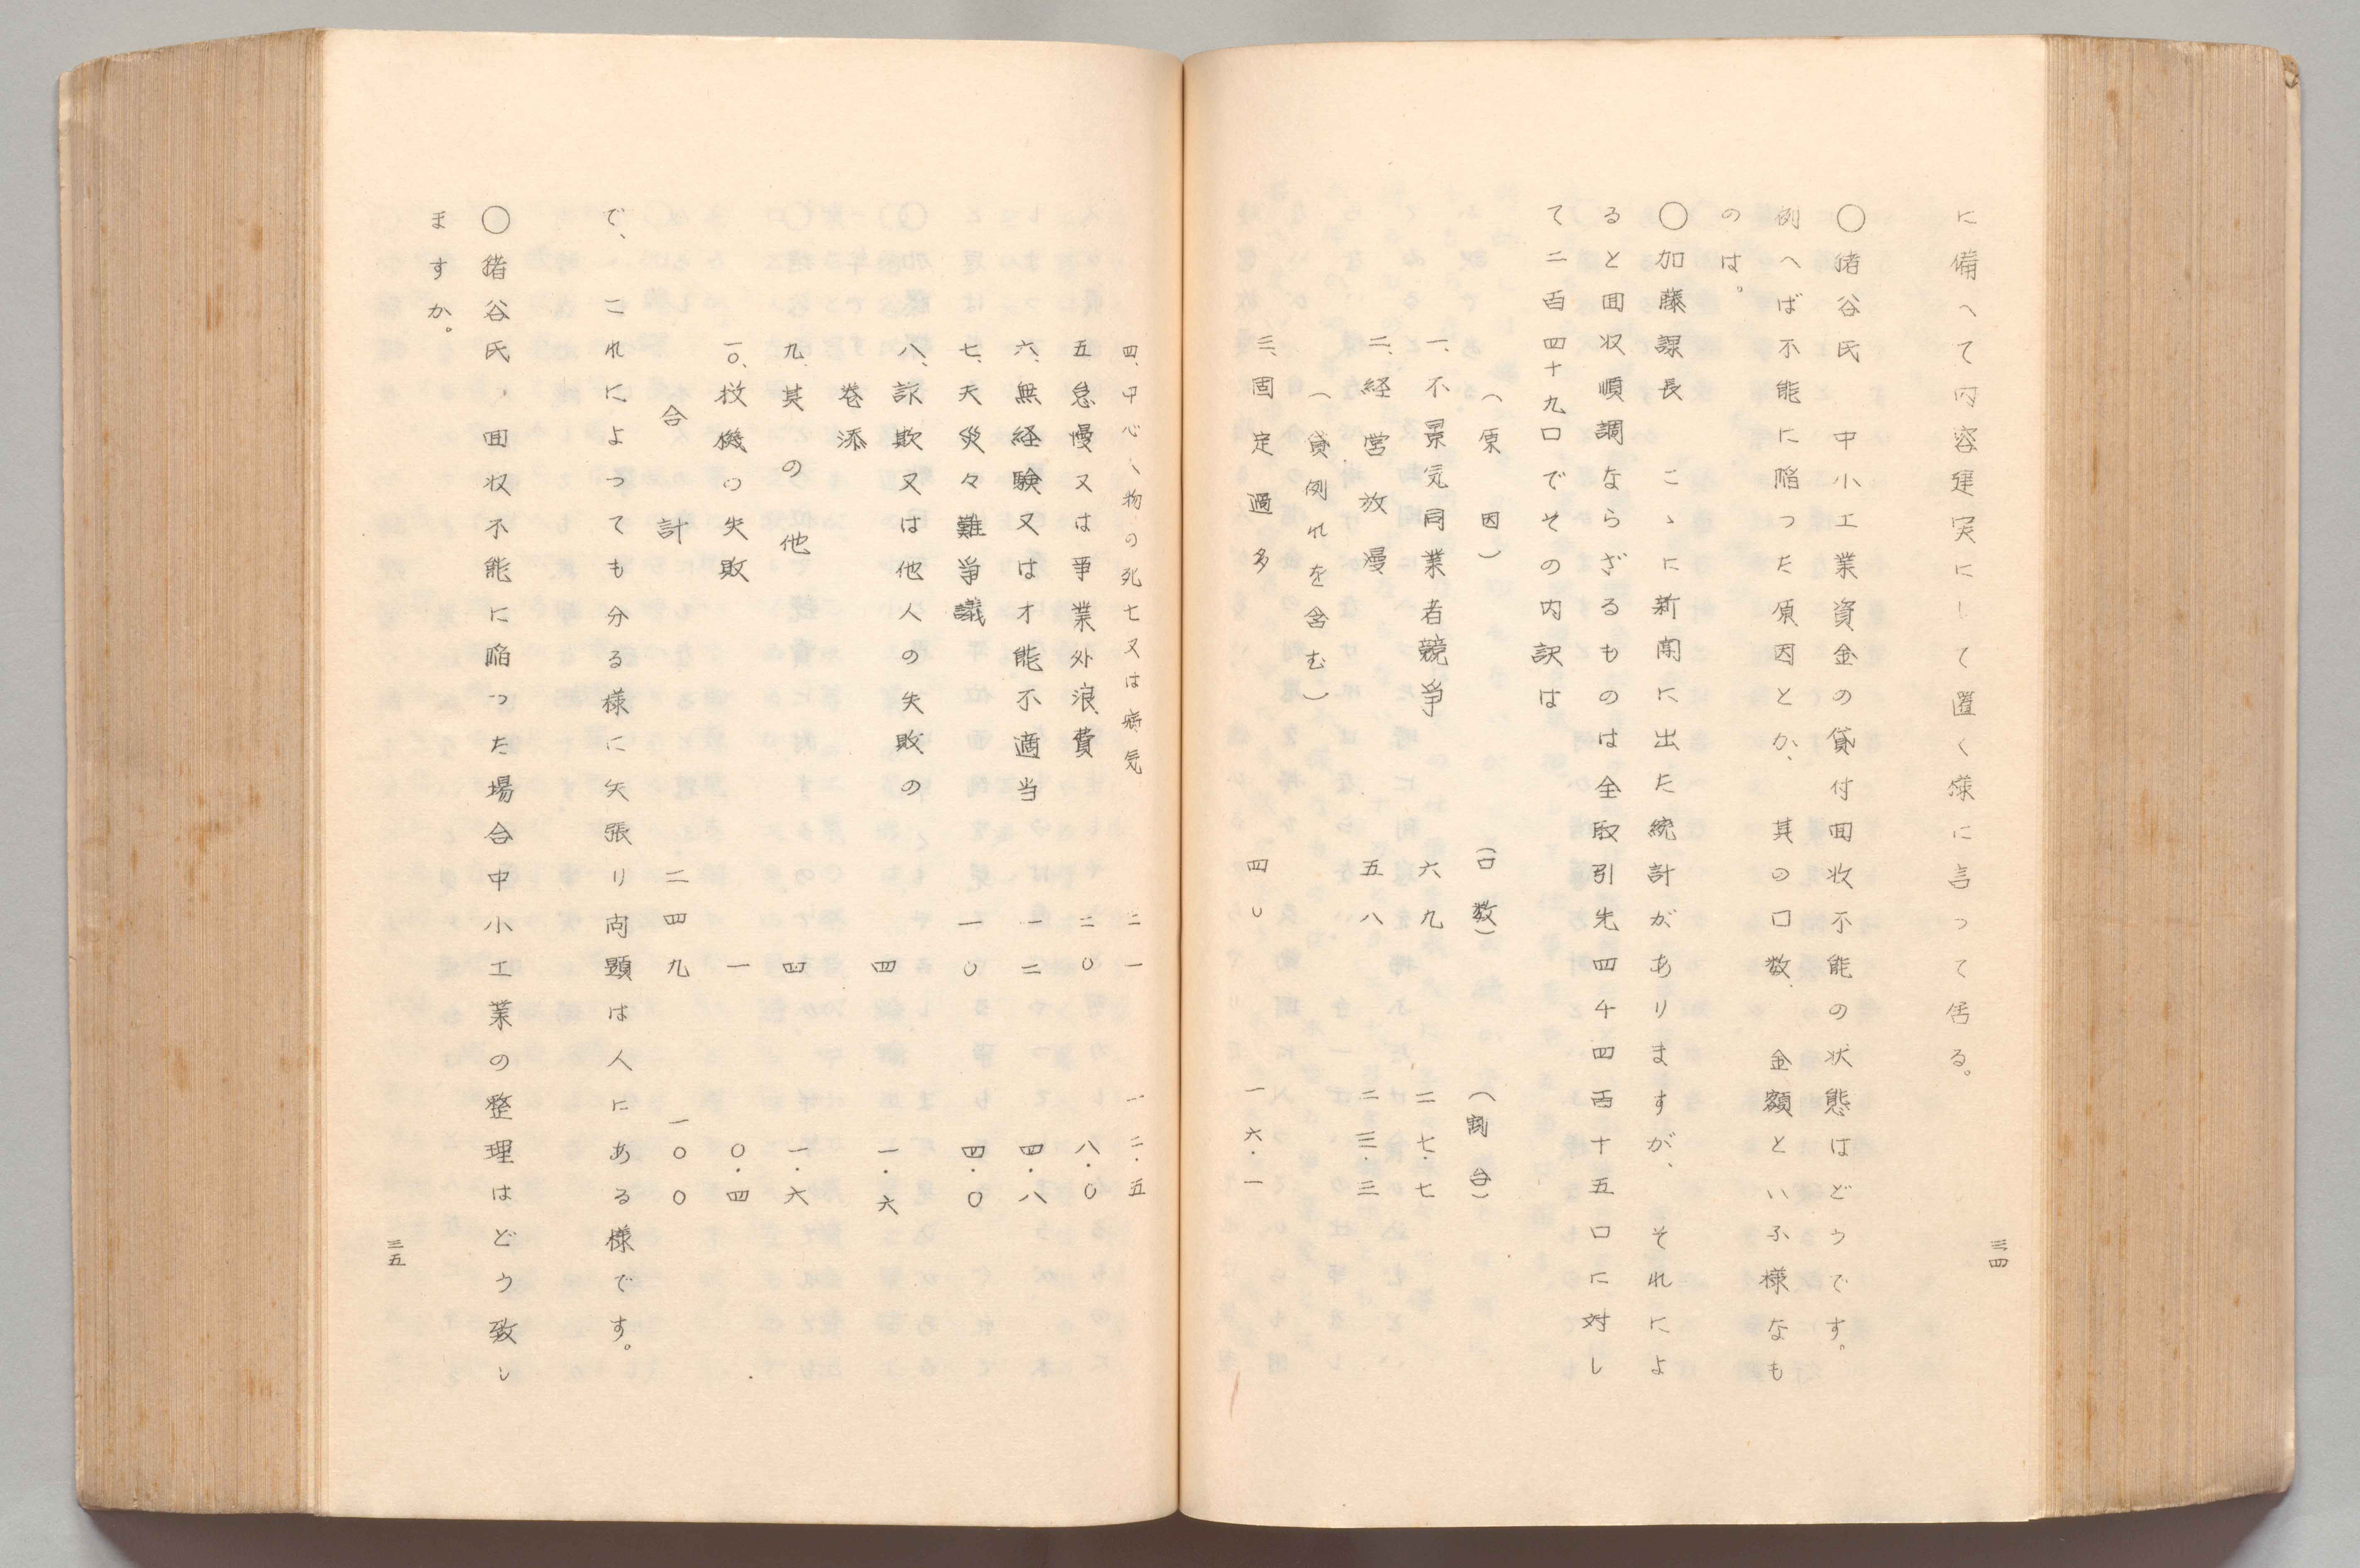 に備へて内容建実にして置く様に言って居る。
〇猪谷氏　中小工業資金の貸付囬收不能の状態はどうです。
例へば不能に陥った原因とか、其の口数、金額といふ様なも
のは。
〇加藤課長　こゝに新聞に出た統計がありますが、それによ
ると囬收順調ならざるものは全取引先四千四百十五口に対し
て二百四十九口でその内訳は
（原因）　（口数）　（割合）
一、不景気同業者競爭　六九　二七・七
二、経営放漫　五八　二三・三
（貸倒れを含む）
三、固定過多　四〇　一六・一
三四
四、中心人物の死亡又は病気　三一　一二・五
五、怠慢又は事業外浪費　二〇　八・〇
六、無経験又は才能不適当　一二　四・八
七、天災々難爭議　一〇　四・〇
八、詐欺又は他人の失敗の
巻添　四　一・六
九、其の他　四　一・六
一〇、投機の失敗　一　〇・四
合計　二四九　一〇〇
で、これによっても分る様に矢張り問題は人にある様です。
〇猪谷氏，囬收不能に陥った場合中小工業の整理はどう致し
ますか。
三五